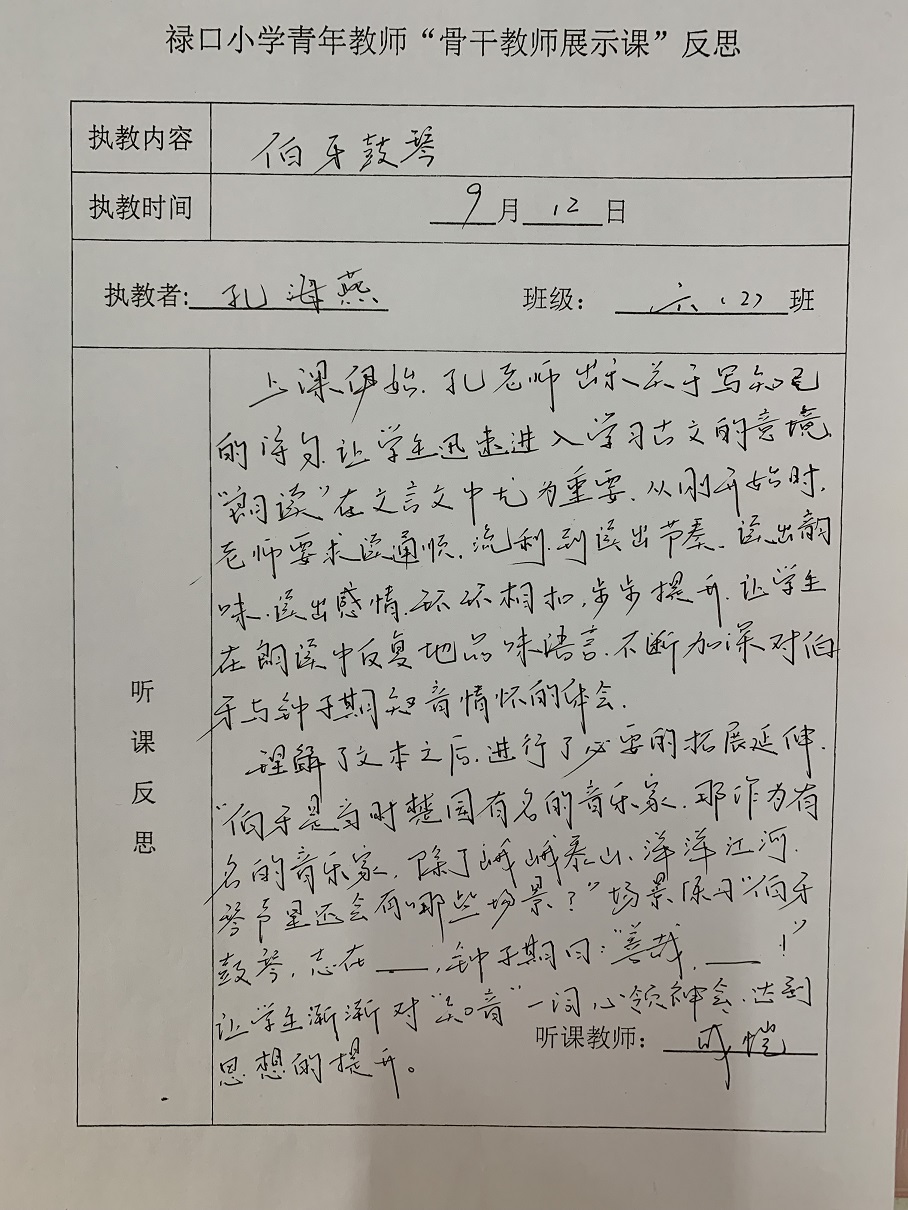 禄口小学青年教师“骨干教师展示课”反思
执教内容 伯牙鼓琴
执教时间 9月12日
执教者:孔海燕 班级：六（2）班
听课反思
上课伊始，孔老师出示关于写知己
的诗句，让学生迅速进入学习古文的意境，
“朗读”在文言文中尤为重要，从刚开始时，
老师要求读通顺，流利，到读出节奏，读出韵
味，读出感情，环环相扣，步步提升，让学生
在朗读中反复地品味语言，不断加深对伯
牙与钟子期知音情怀的体会。
理解了文本之后，进行了必要的拓展延伸，
“伯牙是当时楚国有名的音乐家，那作为有
名的音乐家，除了峨峨泰山、洋洋江河，
琴声里还会有哪些场景？”场景练习“伯牙
鼓琴，志在___，钟子期曰：“善哉，___！”
让学生渐渐对“知音”一词心领神会，达到
思想的提升。
听课教师：成恺